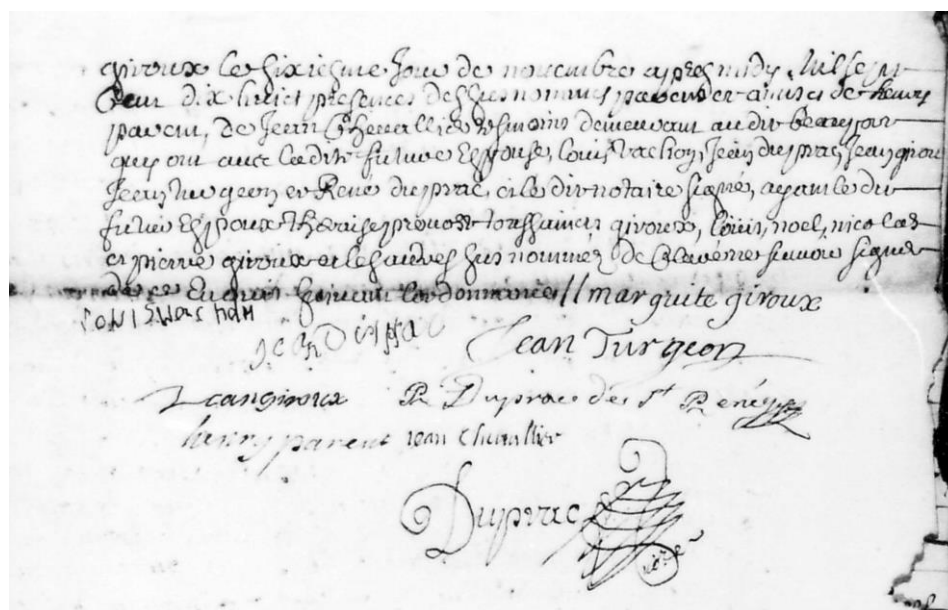 giroux le sixiesme Jour de novembre apres midy mil sept
Cent dix huict presences des susnommes parents et amis et de henry
parent, de Jean Chevallier tesmoins demeurant audit beauport
quy ont avec ladite future Espouse, Louis vachon, Jean duprac, Jean giroux
Jean turgeon et René duprac, et le dit notaire signé, ayant le dit
futur Espoux therese prevost toussaincts giroux, Louis, noel, nicolas
et pierre giroux et les autres sus nommez declarés ne scavoir signer
de ce Enquis suivant Lordonnance // marguite giroux
LOUISVACHAN
Jean Turgeon
Jeangiroux R Duprac de St Réné
henry parent iean Chevallier
Duprac